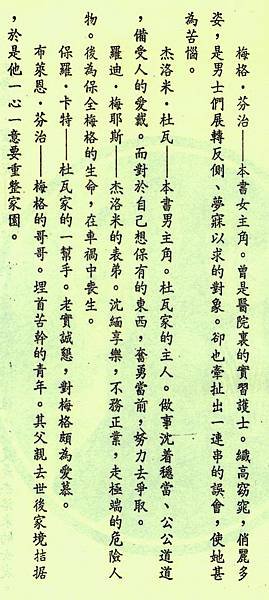 梅格·芬治——本書女主角。曾是醫院裏的實習護士。纖高窈窕，俏麗多
姿，是男士們展轉反側、夢寐以求的對象。卻也牽扯出一連串的誤會，使她甚
為苦惱。
杰洛米·杜瓦——本書男主角。杜瓦家的主人。做事沈着穩當、公公道道
，備受人的愛戴。而對於自己想保有的東西，奮勇當前，努力去爭取。
羅迪·梅耶斯——杰洛米的表弟。沈緬享樂，不務正業，走極端的危險人
物。後為保全梅格的生命，在車禍中喪生。
保羅·卡特——杜瓦家的一幫手。老實誠懇，對梅格頗為愛慕。
布萊恩·芬治——梅格的哥哥。埋首苦幹的青年。其父親去世後家境拮据
，於是他一心一意要重整家園。